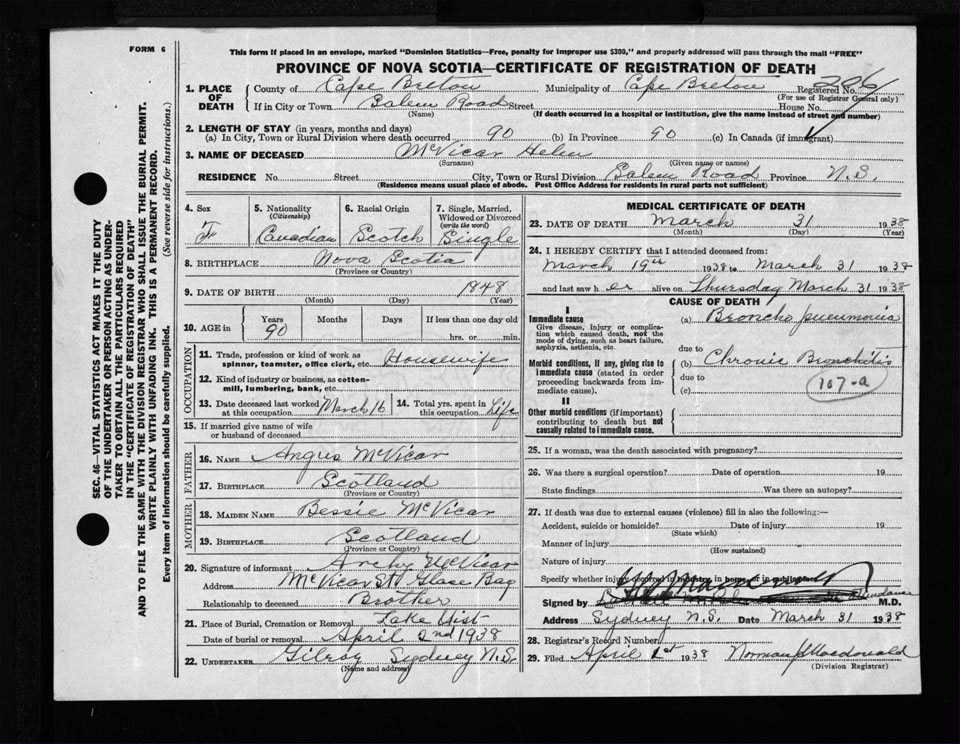 FORM 6
This form if placed in an envelope, marked "Dominion Statistics—Free, penalty for improper use $300," and properly addressed will pass through the mail "FREE"
PROVINCE OF NOVA SCOTIA—CERTIFICATE OF REGISTRATION OF DEATH
SEC. 46—VITAL STATISTICS ACT MAKES IT THE DUTY
OF THE UNDERTAKER OR PERSON ACTING AS UNDER-
TAKER TO OBTAIN ALL THE PARTICULARS REQUIRED
IN THE "CERTIFICATE OF REGISTRATION OF DEATH"
AND TO FILE THE SAME WITH THE DIVISION REGISTRAR WHO SHALL ISSUE THE BURIAL PERMIT.
WRITE PLAINLY WITH UNFADING INK. THIS IS A PERMANENT RECORD.
Every item of information should be carefully supplied. (See reverse side for instructions.)
1. PLACE OF DEATH
County of Cape Breton Municipality of Cape Breton Registered No. 206
(For use of Registrar General only)
If in City or Town Salem Road Street House No.
(Name) (If death occurred in a hospital or institution, give the name instead of street and number)
2. LENGTH OF STAY (in years, months and days)
(a) In City, Town or Rural Division where death occurred 90 (b) In Province 90 (c) In Canada (if immigrant)
3. NAME OF DECEASED McVicar Helen
(Surname) (Given name or names)
RESIDENCE No. Street City, Town or Rural Division Salem Road Province N.S.
(Residence means usual place of abode. Post Office Address for residents in rural parts not sufficient)
4. Sex
F
5. Nationality
(Citizenship)
Canadian
6. Racial Origin
Scotch
7. Single, Married,
Widowed or Divorced
(write the word)
Single
8. BIRTHPLACE Nova Scotia
(Province or Country)
9. DATE OF BIRTH 1848
(Month) (Day) (Year)
10. AGE in
Years Months Days If less than one day old
90 hrs. or min.
OCCUPATION
11. Trade, profession or kind of work as
spinner, teamster, office clerk, etc. Housewife
12. Kind of industry or business, as cotton-
mill, lumbering, bank, etc.
13. Date deceased last worked
at this occupation March 16
14. Total yrs. spent in
this occupation Life
15. If married give name of wife
or husband of deceased
FATHER
16. NAME Angus McVicar
17. BIRTHPLACE Scotland
(Province or Country)
MOTHER
18. MAIDEN NAME Bessie McVicar
19. BIRTHPLACE Scotland
(Province or Country)
20. Signature of informant Archy McVicar
Address McVicar St Glace Bay
Relationship to deceased Brother
21. Place of Burial, Cremation or Removal Lake Uist
Date of burial or removal April 2nd 1938
22. UNDERTAKER Gilroy Sydney N.S.
(Name and address)
MEDICAL CERTIFICATE OF DEATH
23. DATE OF DEATH March 31 1938
(Month) (Day) (Year)
24. I HEREBY CERTIFY that I attended deceased from:
March 19th 1938 to March 31 1938
and last saw h er alive on Thursday March 31 1938
CAUSE OF DEATH
I
Immediate cause
Give disease, injury or complica-
tion which caused death, not the
mode of dying, such as heart failure,
asphyxia, asthenia, etc.
(a) Broncho pneumonia
due to
Morbid conditions, if any, giving rise to
immediate cause (stated in order
proceeding backwards from im-
mediate cause).
(b) Chronic Bronchitis
due to
(c)
107-a
II
Other morbid conditions (if important)
contributing to death but not
causally related to immediate cause.
25. If a woman, was the death associated with pregnancy?
26. Was there a surgical operation? Date of operation 19
State findings Was there an autopsy?
27. If death was due to external causes (violence) fill in also the following:—
Accident, suicide or homicide? Date of injury 19
(State which)
Manner of injury
(How sustained)
Nature of injury
Specify whether injury occurred in industry, in home, or in public place
Signed by M.D.
Address Sydney N.S. Date March 31 1938
28. Registrar's Record Number
29. Filed April 1st 1938 Norman J Macdonald
(Division Registrar)